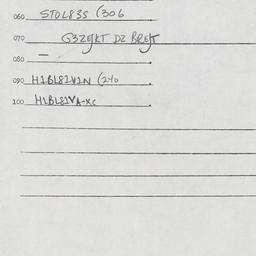 060 STOL835 (306
070 G3ZEJKT DZ BREJT
080 —
090 H1BL81V1N (240
100 H1BL81VA-XC